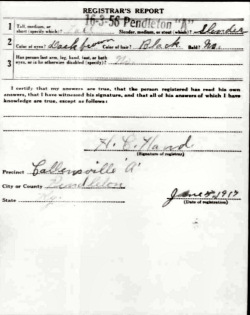 REGISTRAR'S REPORT
16-3-56 Pendleton "A"
1 Tall, medium, or short (specify which)? Tall Slender, medium, or stout (which)? Slender
2 Color of eyes? Dark brown Color of hair? Black Bald? No.
3 Has person lost arm, leg, hand, foot, or both eyes, or is he otherwise disabled (specify)? No.
I certify that my answers are true, that the person registered has read his own answers, that I have witnessed his signature, and that all of his answers of which I have knowledge are true, except as follows:
(Signature of registrar)
Precinct "A"
City or County Pendleton
State Ky.
June 5, 1917
(Date of registration)